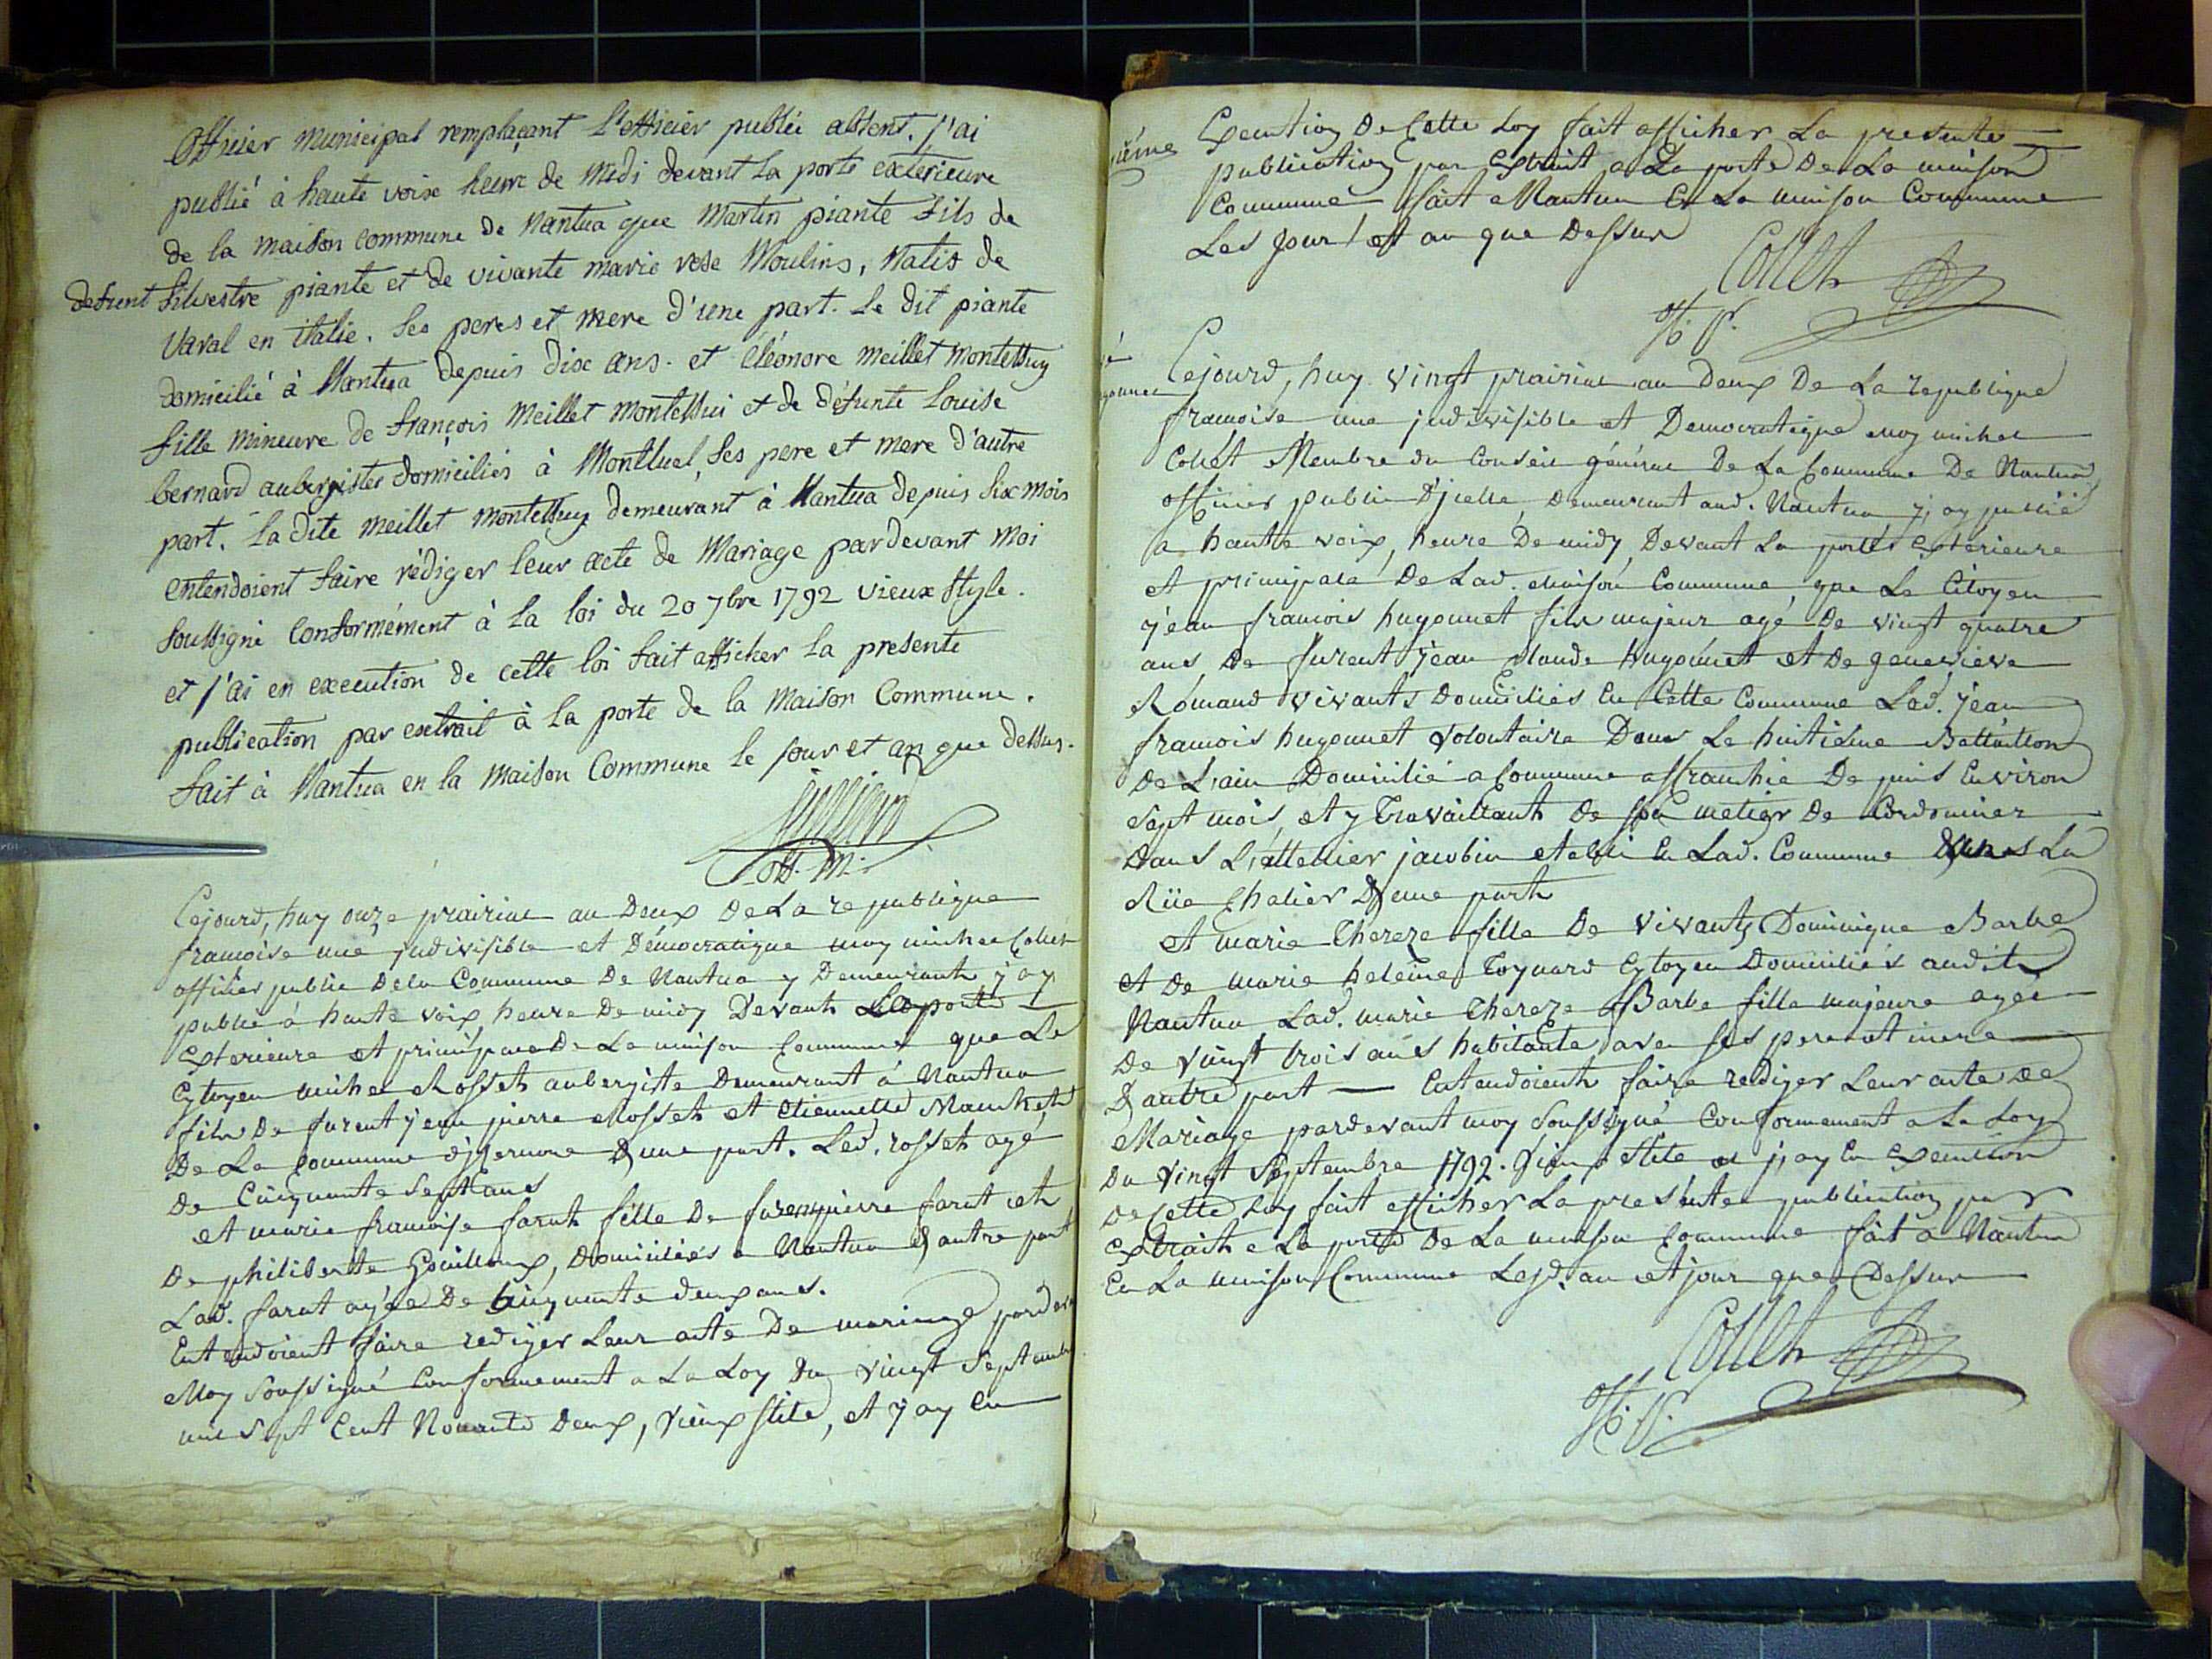 Officier municipal remplaçant l'officier public absent. j'ai
publié à haute voix heure de Midi devant la porte exterieure
de la maison commune de Nantua que Martin piante fils de
defunt Silvestre piante et de vivante marie rose Moulins, Natis de
Varal en italie. ses peres et mere d'une part. le dit piante
domicilié à Nantua depuis dix ans. et eléonore meillet montessuy
fille mineure de françois meillet montessui et de défunte Louise
bernard aubergistes domiciliés à Montluel, ses pere et mere d'autre
part. la dite meillet montessuy demeurant à Nantua depuis six mois
entendoient faire rédiger leur acte de Mariage pardevant moi
soussigné conformément à la loi du 20 7bre 1792 vieux style.
et j'ai en execution de cette loi fait afficher la presente
publication par extrait à la porte de la maison Commune.
fait à Nantua en la maison Commune le jour et an que dessus.
off. m.
Cejourd, huy onze prairial an Deux De La republique
francoise une indivisible et Démocratique moy michel Collet
officier public Dela Commune De Nantua y Demeurant j'ay
publié à haute voix heure De midy Devant La porte
Exterieure et principale De La maison Commune que Le
Cytoyen michel Rosset aubergiste Demeurant à Nantua
fils De furent jean pierre Rosset et etiennette
De La Commune d'jzernore D'une part. Led. rosset agé
De Cinquante Sept ans
et marie francoise farat fille De furent pierre farat et
De philiberte Gouilloux, Domiciliés a Nantua D'autre part
Lad. farat agée De Cinquante deux ans.
Entendoient faire rediger Leur acte De mariage pardevt
Moy soussigné Conformement a La Loy Du vingt Septembre
mil sept Cent Nonante Deux, vieux stile, et j'ay En
Execution De Cette Loy fait afficher La presente
publication par Extrait a La porte De La maison
Commune fait a Nantua En La maison Commune
Les jour et an que Dessus
Collet
Cejourd, huy vingt prairial an Deux De La republique
francoise une indivisible et Democratique moy michel
Collet Membre du Conseil général De La Commune De Nantua
officier public D'jcelle, Demeurant aud. Nantua j'ay publié
a haute voix, heure De midy Devant La porte exterieure
et principale De Lad. maison Commune, que Le Citoyen
jean francois hugonnet fils majeur agé De vingt quatre
ans De furent jean Claude hugonnet et De genevieve
Romand vivants Domiciliés En Cette Commune Led. jean
francois hugonnet volontaire Dans Le huitieme Battaillon
De L'ain Domicilié a Commune affranchie Depuis Environ
Sept mois, et y Travaillant De son metier De Cordonnier
Dans L'attellier jacobin etabli En Lad. Commune Dans La
Rüe Chalier D'une part
et marie Thereze fille De vivants Dominique Barbe
et De marie heleine Cytoyen Domiciliés audit
Nantua Lad. marie Thereze Barbe fille majeure agée
De vingt trois ans habitante avec ses pere et mere
D'autre part — Entendoient faire rediger Leur acte De
Mariage pardevant moy soussigné Conformement a La Loy
Du vingt Septembre 1792. vieux stile et j'ay En Execution
De Cette Loy fait afficher La presente publication par
Extrait a La porte De La maison Commune fait a Nantua
En La maison Commune Lesd. an et jour que Dessus
Collet